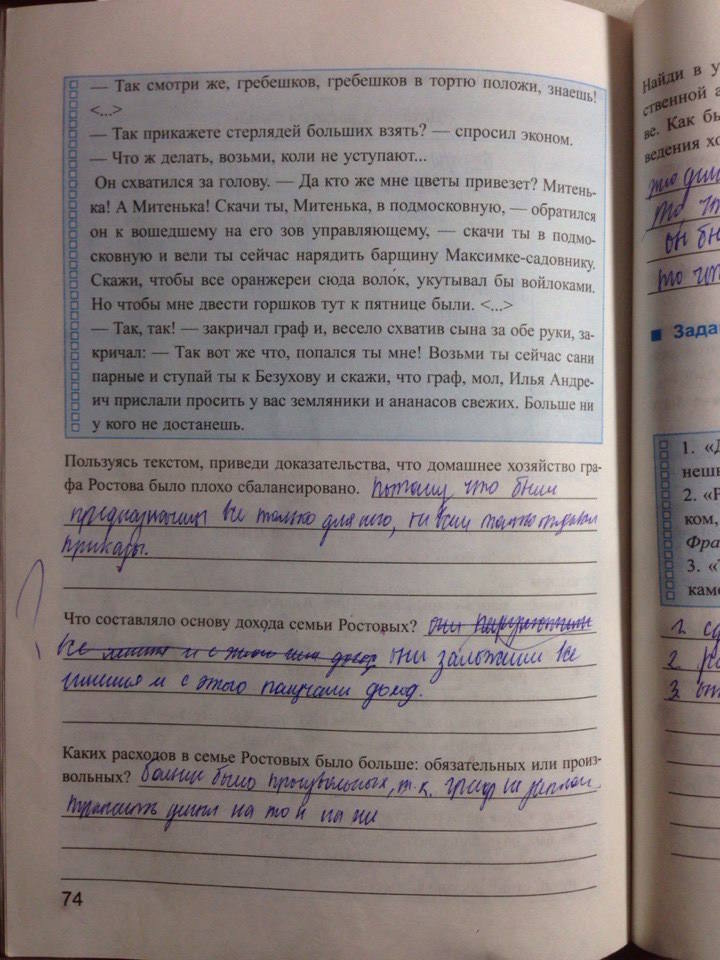 — Так смотри же, гребешков, гребешков в тортю положи, знаешь!
<...>
— Так прикажете стерлядей больших взять? — спросил эконом.
— Что ж делать, возьми, коли не уступают...
Он схватился за голову. — Да кто же мне цветы привезет? Митень-
ка! А Митенька! Скачи ты, Митенька, в подмосковную, — обратился
он к вошедшему на его зов управляющему, — скачи ты в подмо-
сковную и вели ты сейчас нарядить барщину Максимке-садовнику.
Скажи, чтобы все оранжереи сюда волок, укутывал бы войлоками.
Но чтобы мне двести горшков тут к пятнице были. <...>
— Так, так! — закричал граф и, весело схватив сына за обе руки, за-
кричал: — Так вот же что, попался ты мне! Возьми ты сейчас сани
парные и ступай ты к Безухову и скажи, что граф, мол, Илья Андре-
ич прислали просить у вас земляники и ананасов свежих. Больше ни
у кого не достанешь.
Пользуясь текстом, приведи доказательства, что домашнее хозяйство гра-
фа Ростова было плохо сбалансировано. потому что были
все только для него,
приказы.
Что составляло основу дохода семьи Ростовых? они
все они заложили все
имения и с этого получали доход.
Каких расходов в семье Ростовых было больше: обязательных или произ-
вольных? больше было произвольных, т.к. граф не
на то и на
74
Найди в у
ственной а
ве. Как бы
ведения хо
это
то
он бы
то что
Зада
1. «Д
нешь
2. «Р
ком,
Фра
3. «Т
каме
1.
2.
3.